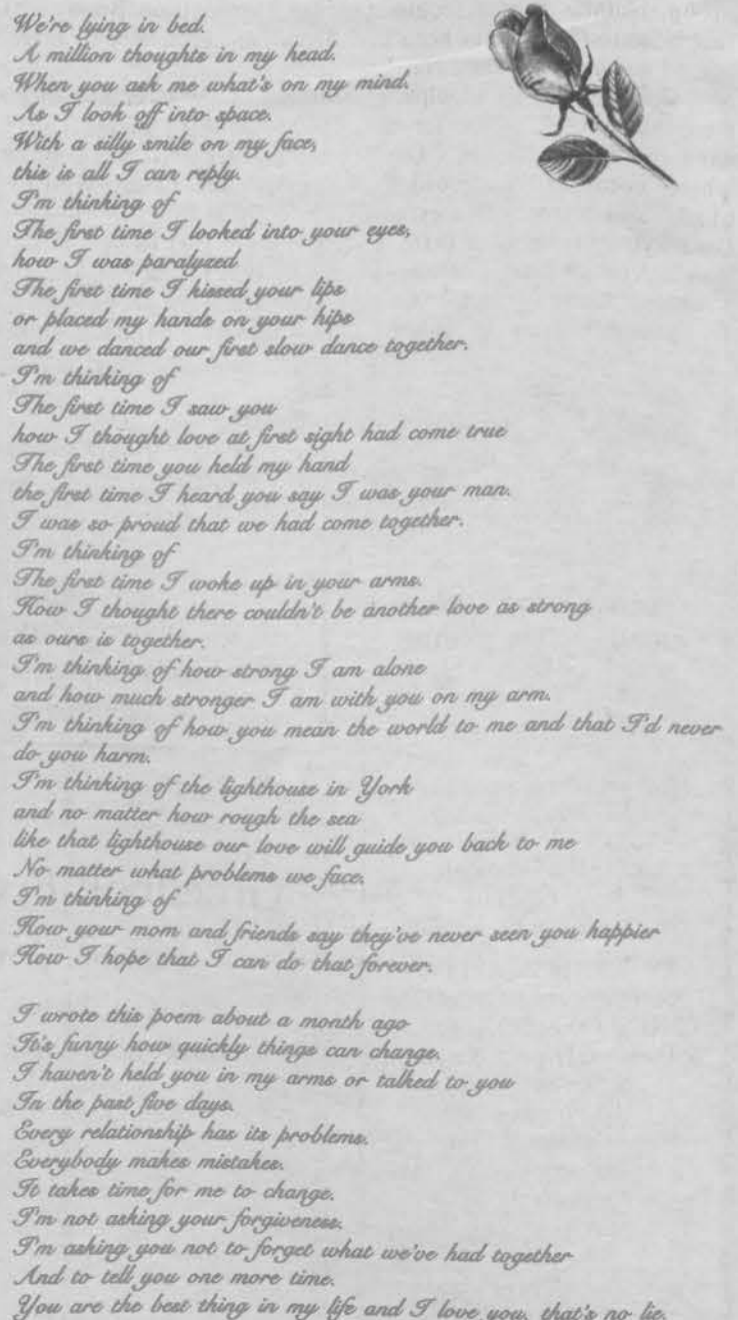 We're lying in bed.
A million thoughts in my head.
When you ask me what's on my mind.
As I look off into space.
With a silly smile on my face,
this is all I can reply.
I'm thinking of
The first time I looked into your eyes,
how I was paralyzed
The first time I kissed your lips
or placed my hands on your hips
and we danced our first slow dance together.
I'm thinking of
The first time I saw you
how I thought love at first sight had come true
The first time you held my hand
the first time I heard you say I was your man.
I was so proud that we had come together.
I'm thinking of
The first time I woke up in your arms.
How I thought there couldn't be another love as strong
as ours is together.
I'm thinking of how strong I am alone
and how much stronger I am with you on my arm.
I'm thinking of how you mean the world to me and that I'd never
do you harm.
I'm thinking of the lighthouse in York
and no matter how rough the sea
like that lighthouse our love will guide you back to me
No matter what problems we face.
I'm thinking of
How your mom and friends say they've never seen you happier
How I hope that I can do that forever.

I wrote this poem about a month ago
It's funny how quickly things can change.
I haven't held you in my arms or talked to you
In the past five days.
Every relationship has its problems.
Everybody makes mistakes.
It takes time for me to change.
I'm not asking your forgiveness.
I'm asking you not to forget what we've had together
And to tell you one more time.
You are the best thing in my life and I love you, that's no lie.